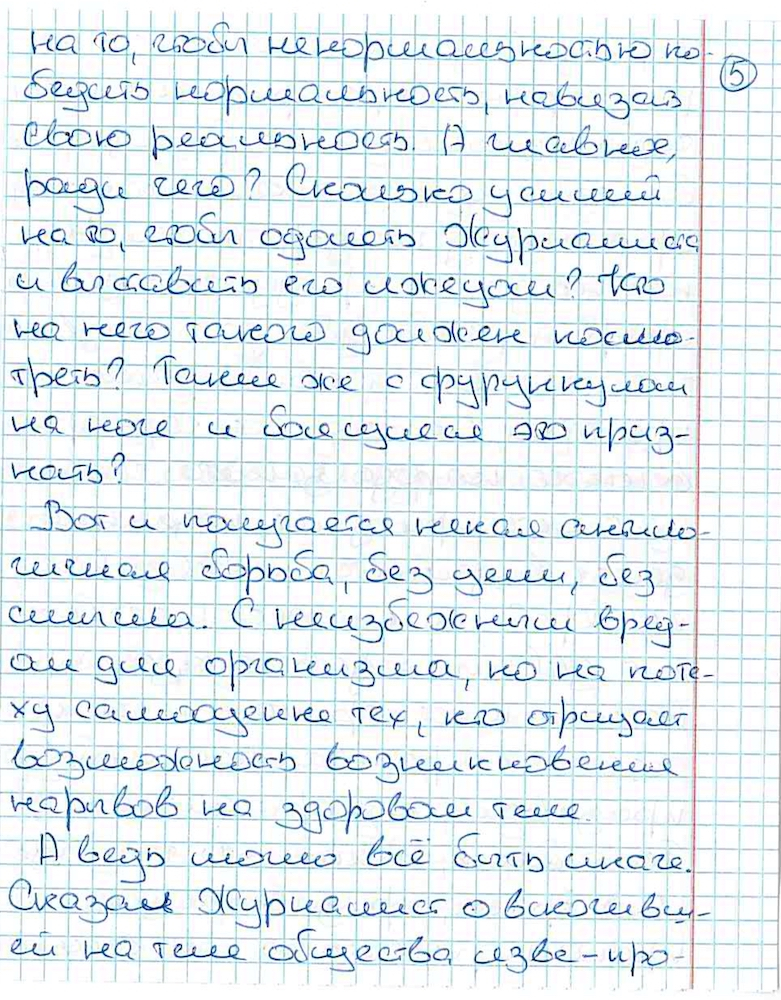 на то, чтобы ненормальностью по-
5
бедить нормальность, навязав
свою реальность. А главное,
ради чего? Сколько усилий
на то, чтобы одолеть Журналиста
и выставить его лжецом? Кто
на него такого должен посмо-
треть? Такие же с фурункулом
на ноге и боящиеся это приз-
нать?
Вот и получается некая
гичная борьба, без цели, без
смысла. С неизбежным вред-
ом для организма, но на поте-
ху самооценке тех, кто отрицает
возможность возникновения
нарывов на здоровом теле.
А ведь могло всё быть иначе.
Сказал Журналист о вскочивш-
ей на теле общества язве - про-